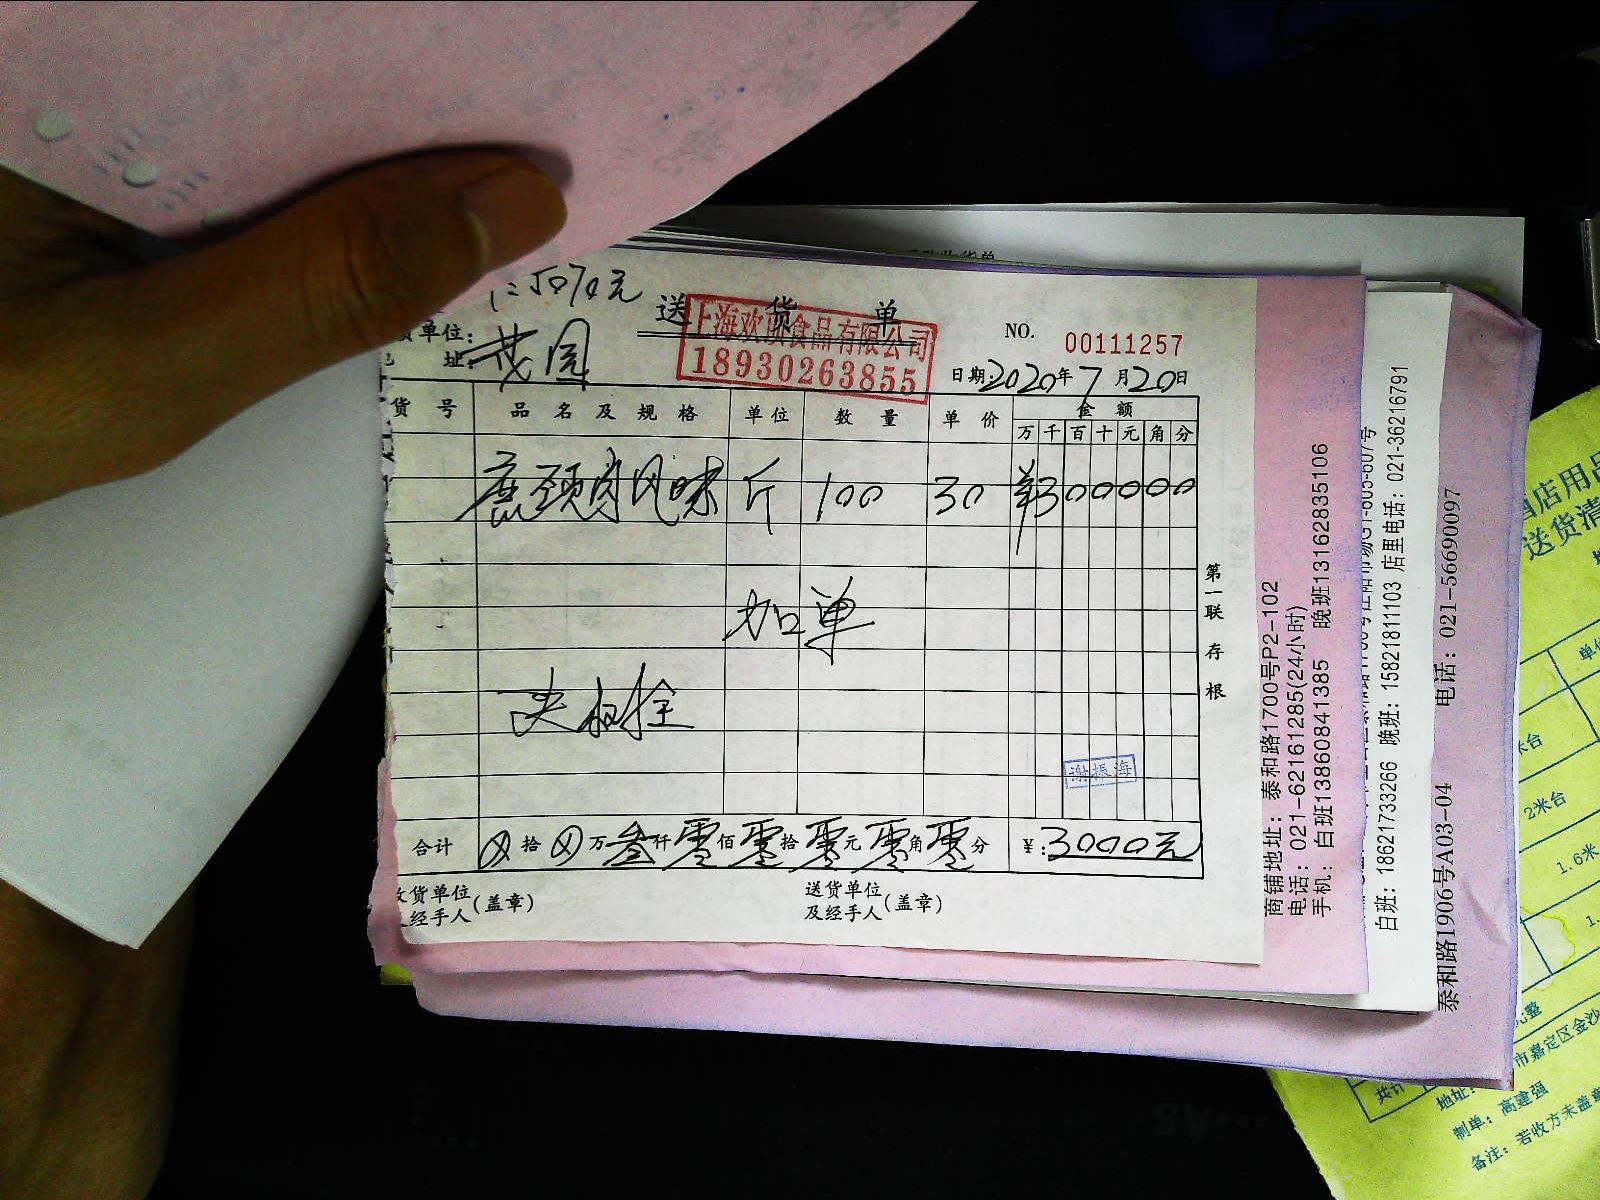 送货单
上海欢 食品有限公司
18930263855
单位:
址: 茂园
NO. 00111257
日期: 2020年7月20日
货号 品名及规格 单位 数量 单价 金额
万 千 百 十 元 角 分
鹿颈肉风味 斤 100 30 ¥300000
加单
谢振海
合计 ⊗拾⊗万叁仟零佰零拾零元零角零分 ¥:3000元
收货单位及经手人(盖章)
送货单位及经手人(盖章)
第一联 存根
商铺地址: 泰和路1700号P2-102
电话: 021-62161285(24小时)
手机: 白班13860841385 晚班13162835106
白班: 18621733266 晚班: 15821811103 店里电话: 021-36216791
泰和路1906号A03-04 电话: 021-56690097
酒店用品
送货清
单位
米台
2米台
1.6米
1.
完整
共计
市嘉定区金沙
地址:
制单: 高建强
备注: 若收方未盖章